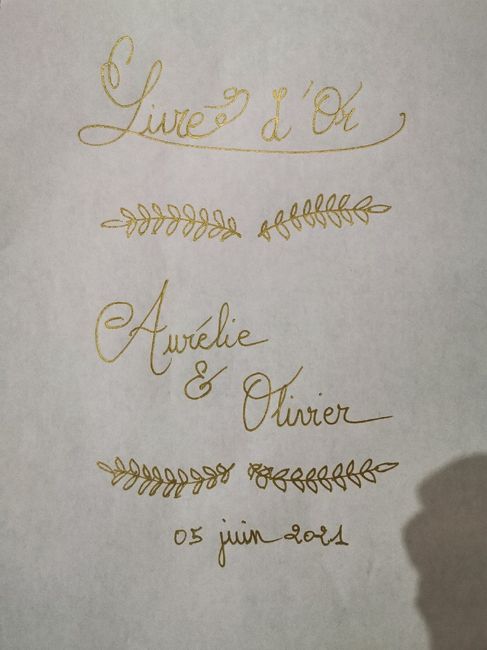 Livre d'Or
Aurélie
&
Olivier
05 juin 2021